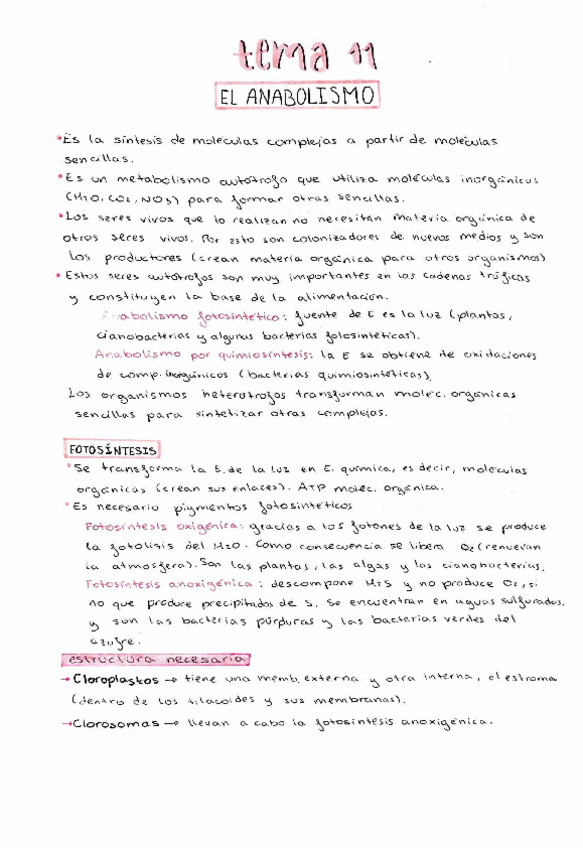 tema 11
EL ANABOLISMO
*Es la síntesis de moléculas complejas a partir de moléculas
sencillas.
*Es un metabolismo autótrofo que utiliza moléculas inorgánicas
(H2O, CO2, NO3) para formar otras sencillas.
*Los seres vivos que lo realizan no necesitan materia orgánica de
otros seres vivos. Por esto son colonizadores de nuevos medios y son
los productores (crean materia orgánica para otros organismos)
*Estos seres autótrofos son muy importantes en las cadenas tróficas
y constituyen la base de la alimentación.
Anabolismo fotosintético: fuente de E es la luz (plantas,
cianobacterias y algunas bacterias fotosintéticas).
Anabolismo por quimiosíntesis: la E se obtiene de oxidaciones
de comp. inorgánicos (bacterias quimiosintéticas)
Los organismos heterótrofos transforman moléc. orgánicas
sencillas para sintetizar otras complejas.
FOTOSÍNTESIS
*Se transforma la E. de la luz en E. química, es decir, moléculas
orgánicas (crean sus enlaces). ATP moléc. orgánica.
*Es necesario pigmentos fotosintéticos
Fotosíntesis oxigénica: gracias a los fotones de la luz se produce
la fotólisis del H2O. Como consecuencia se libera O2 (renuevan
la atmosfera). Son las plantas, las algas y las cianobacterias.
Fotosíntesis anoxigénica: descompone H2S y no produce O2, si
no que produce precipitados de S. Se encuentran en aguas sulfuradas,
y son las bacterias púrpuras y las bacterias verdes del
azufre.
estructura necesaria
→Cloroplastos → tiene una memb. externa y otra interna, el estroma
(dentro de los tilacoides y sus membranas).
→Clorosomas → llevan a cabo la fotosíntesis anoxigénica.